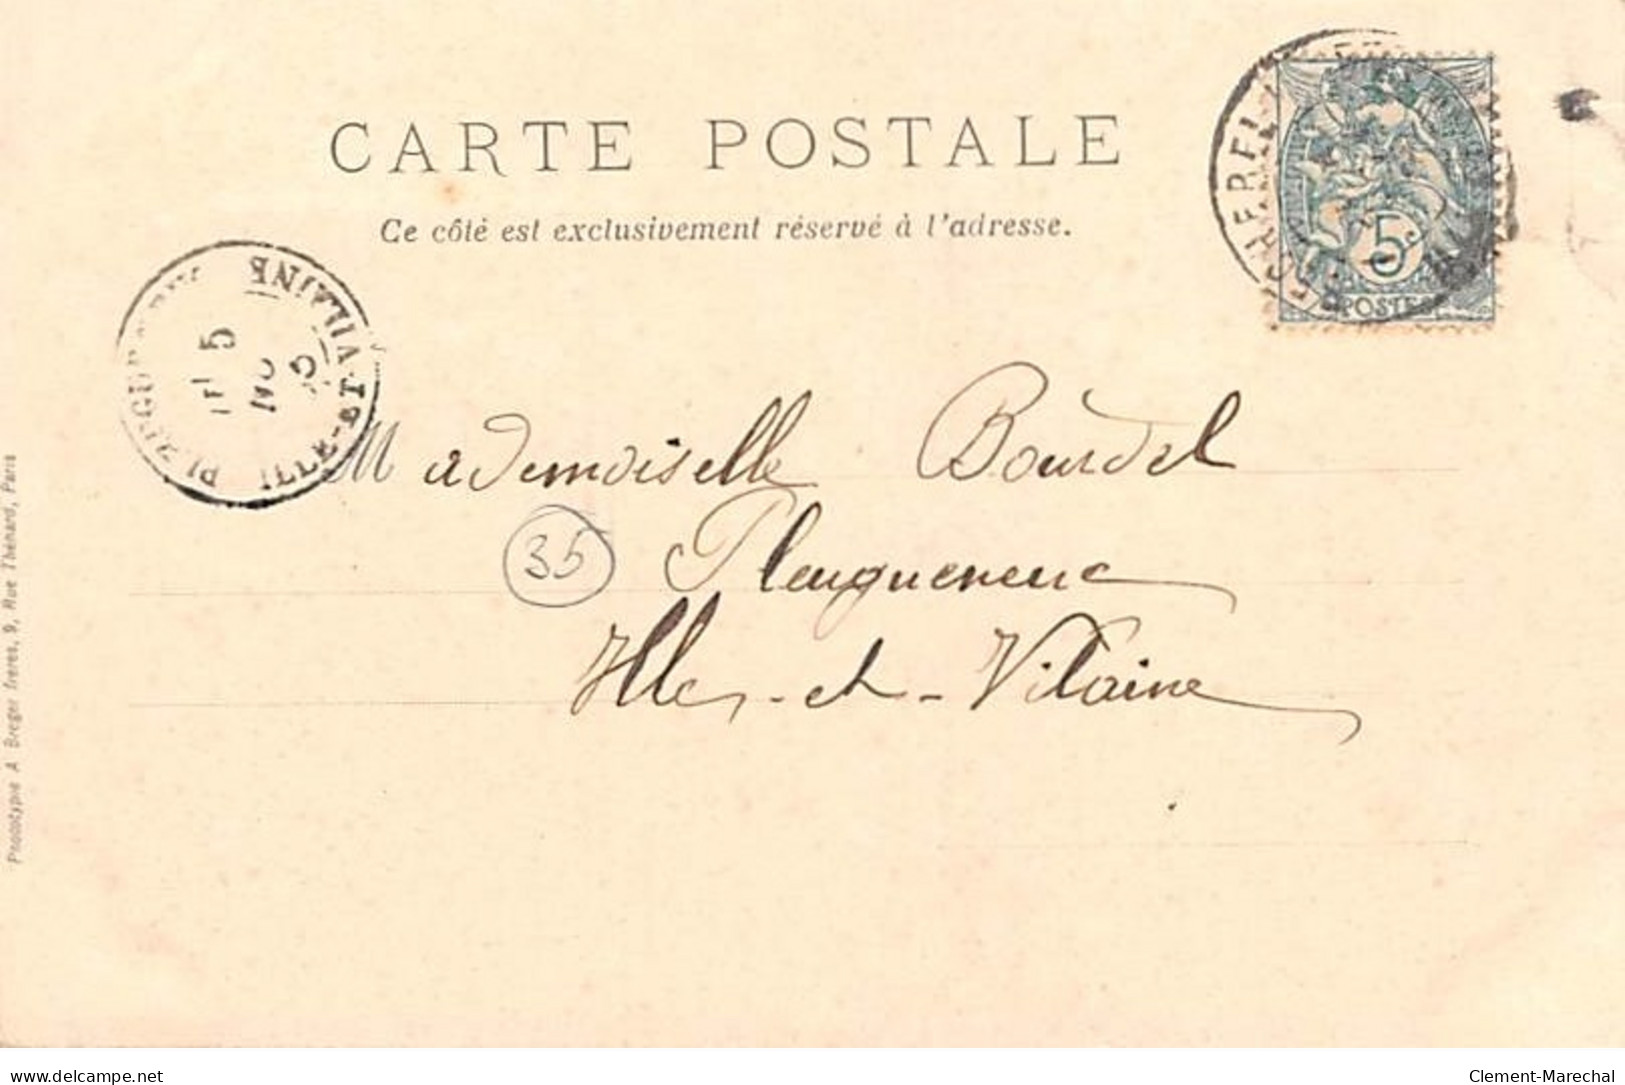 CARTE POSTALE
Ce côté est exclusivement réservé à l'adresse.
5
POSTES
ILLE-ET-VILAINE
5
Mademoiselle Bourdel
35
Pleugueneuc
Ille-et-Vilaine
Phototypie A Breger frères, 9, Rue Thénard, Paris
www.delcampe.net
Clement-Marechal